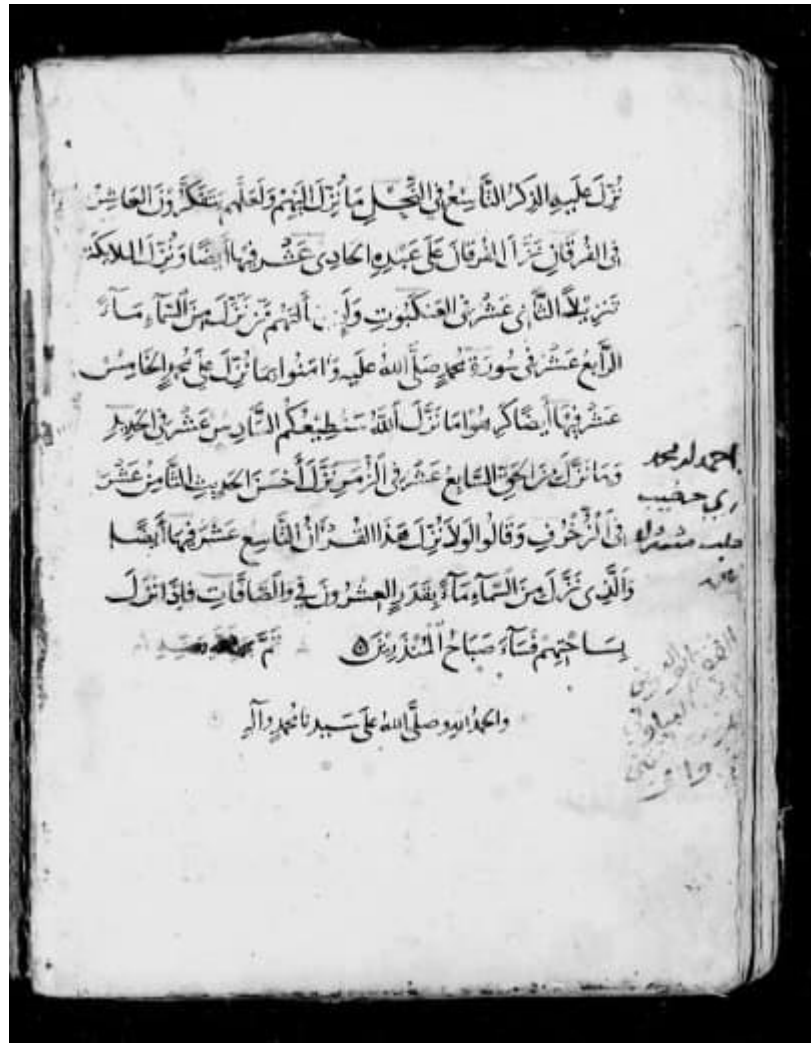 نُزِّلَ عَلَيهِ الذِكرُ التَّاسِعُ فى النَّحلِ مَا نُزِّلَ اِلَيهِمْ وَلَعَلَّهُم يَتَفَكَّرُونَ العَاشِرُ
فى الفُرقَانِ نَزَّلَ الفُرقَانَ عَلَى عَبْدِهِ الحَادِى عَشَر فِيهَا أَيضًا وَنُزِّلَ المَلَائِكَةُ
تَنزِيلاً الثَّانِى عَشَر فى العَنكَبُوتِ وَلَئِن سَأَلتَهُم مَّن نَّزَّلَ مِنَ السَّمَآءِ مَآءً
الرَّابِعُ عَشَر فى سُورَةِ مُحَمَّدٍ صَلَّى اللهُ عَلَيهِ وَءَامَنُوا بِمَا نُزِّلَ عَلَى مُحَمَّدٍ الخَامِسُ
عَشَر فِيهَا أَيضًا كَرِهُوا مَا نَزَّلَ اَللَّهُ سَنُطِيعُكُم السَّادِسُ عَشَر فى الحَدِيدِ
وَمَا نَزَلَ مِنَ الحَقِّ السَّابِعُ عَشَر فى الزُّمَرِ نَزَّلَ أَحْسَنَ الحَدِيثِ الثَّامِنُ عَشَرَ
فى الزُّخرُفِ وَقَالُوا لَولَا نُزِّلَ هَذَا القُرْءَانُ التَّاسِعُ عَشَرَ فِيهَا أَيضًا
وَالَّذِى نَزَّلَ مِنَ السَّمَآءِ مَآءً بِقَدَرٍ العِشْرُونَ فى وَالصَّافَّاتِ فَإِذَا نَزَلَ
بِسَاحَتِهِمْ فَسَآءَ صَبَاحُ المُنذَرِينَ ۝ تَمَّ
وَالحَمدُ للهِ وصَلَّى اللهُ عَلَى سَيِّدِنَا مُحَمَّدٍ وَآلِهِ